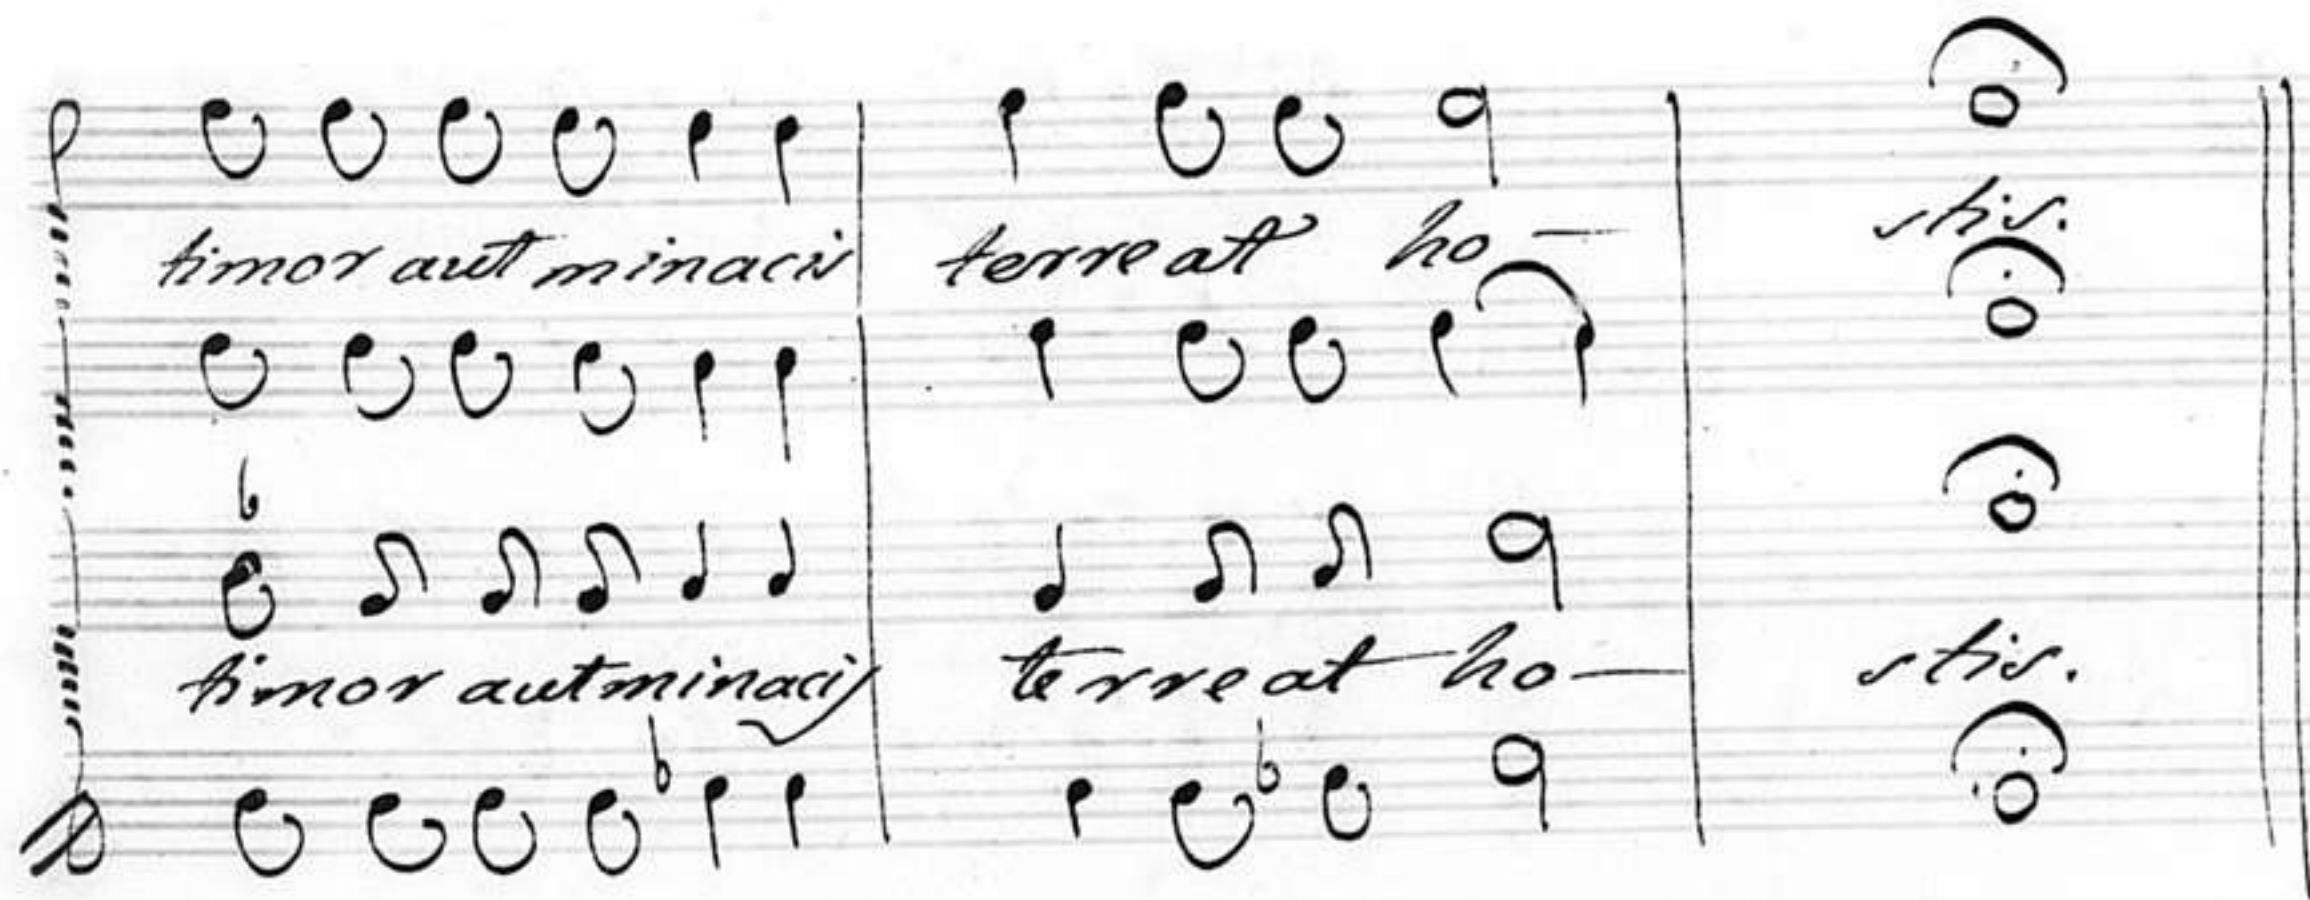 timor aut minacis terreat ho - stis.
timor aut minacis terreat ho - stis.